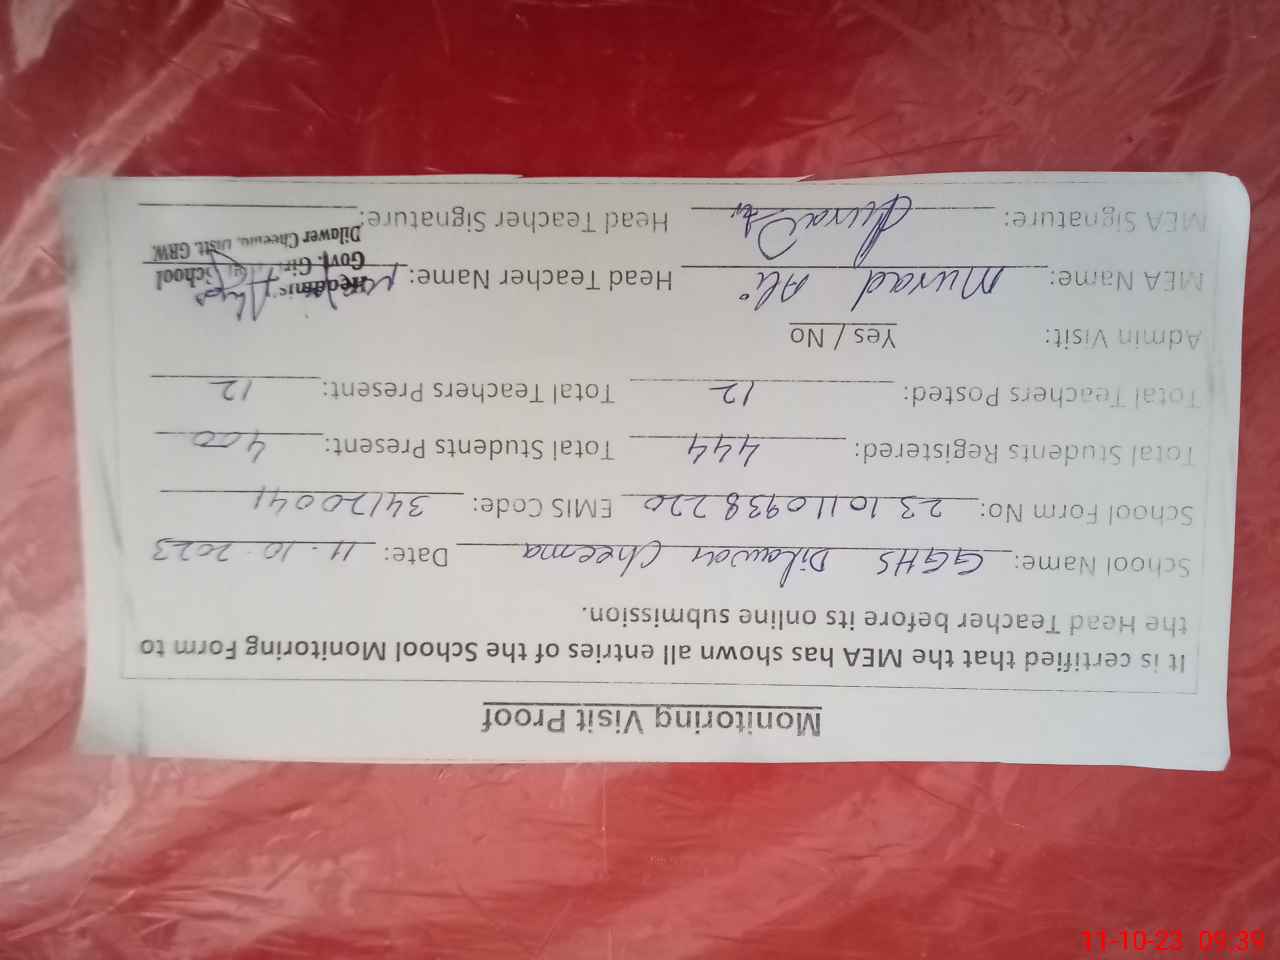 Monitoring Visit Proof
It is certified that the MEA has shown all entries of the School Monitoring Form to
the Head Teacher before its online submission.
School Name: GGHS Dilawar Cheema Date: 11.10.2023
School Form No: 23 10110938220 EMIS Code: 34120041
Total Students Registered: 444 Total Students Present: 400
Total Teachers Posted: 12 Total Teachers Present: 12
Admin Visit: Yes / No
MEA Name: Murad Ali Head Teacher Name:
Headmistress
Govt. Girls School
Dilawer Cheema, Distt. GRW.
MEA Signature: Head Teacher Signature:
11-10-23 09:39